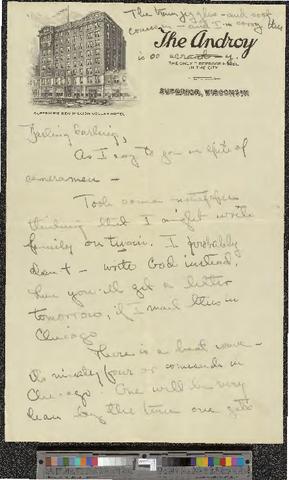 The train jiggles - and soot
coming - and I'm sorry this
is so
The Androy
THE ONLY FIREPROOF HOTEL
IN THE CITY
SUPERIOR, WISCONSIN
SUPERIOR'S NEW MILLION DOLLAR HOTEL
Darling darling,
As I say to you in spite of
cameramen -
Took some
thinking that I might write
family on train. I probably
don't - write God instead,
hope you'll get a letter
tomorrow, if I mail this in
Chicago
There is a heat wave -
its ninety four or in
Chicago. One will be very
lean by the time one gets